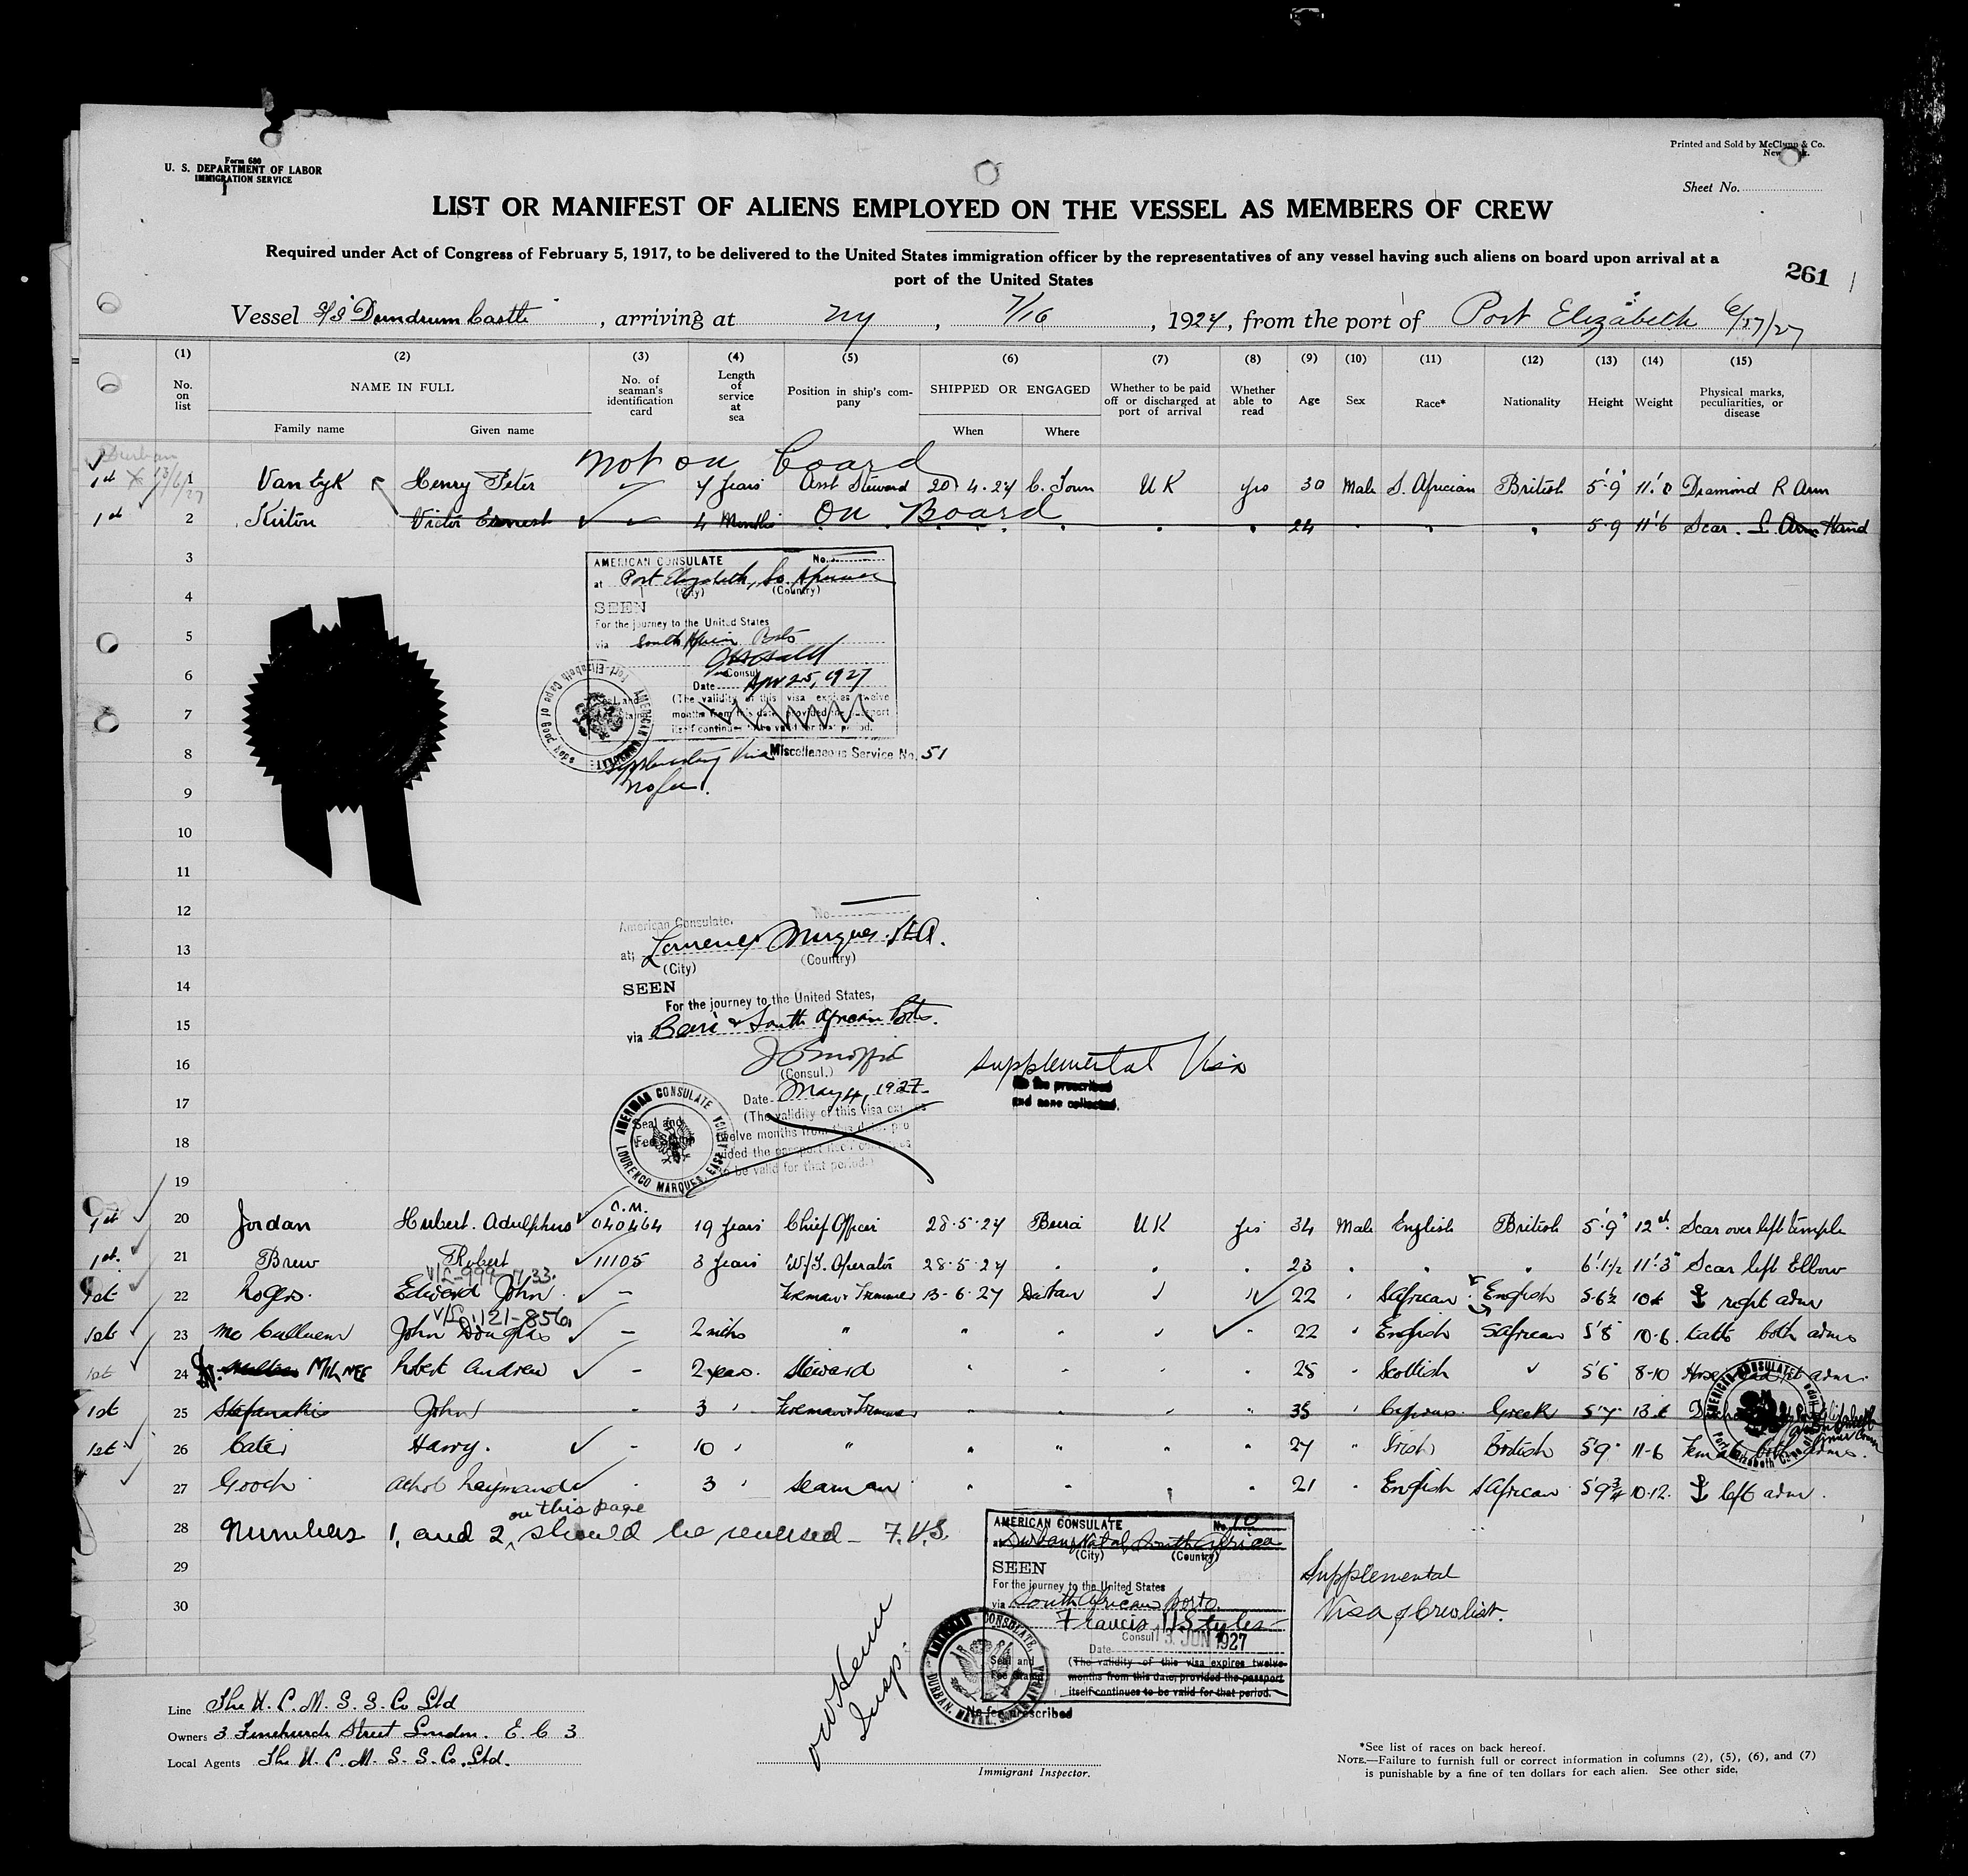 Form 680
U. S. DEPARTMENT OF LABOR
IMMIGRATION SERVICE
Printed and Sold by McClynn & Co.
Sheet No.
LIST OR MANIFEST OF ALIENS EMPLOYED ON THE VESSEL AS MEMBERS OF CREW
Required under Act of Congress of February 5, 1917, to be delivered to the United States immigration officer by the representatives of any vessel having such aliens on board upon arrival at a
port of the United States
261
Vessel S/S "Dundrum Castle", arriving at NY, 7/16, 1927, from the port of Port Elizabeth 6/27/27
(1) (2) (3) (4) (5) (6) (7) (8) (9) (10) (11) (12) (13) (14) (15)
No. on list NAME IN FULL No. of seaman's identification card Length of service at sea Position in ship's company SHIPPED OR ENGAGED Whether to be paid off or discharged at port of arrival Whether able to read Age Sex Race* Nationality Height Weight Physical marks, peculiarities, or disease
Family name Given name When Where
Durban
not on board
1st 13/6/27 1 Van Eyk Henry Peter 7 Years Asst Steward 20 4.27 C. Town UK yes 30 Male S. African British 5'9" 11'0 Diamond R Arm
On Board
1st 2 Kirton Victor Ernest 4 Months 24 5'9 11'6 Scar. L. Arm Hand
3
AMERICAN CONSULATE No.
at Port Elizabeth, So. Africa
(City) (Country)
4
SEEN
For the journey to the United States
5
via South African Ports
Consul
6
Date Apr 25, 1927
(The validity of this visa expires twelve
7
months from this date provided the passport
itself continues to be valid for that period.
8
Supplementary Visa Miscellaneous Service No. 51
No fee.
9
10
11
12
American Consulate. No.
13
at; Lourenço Marques.
(City) (Country)
14
SEEN
For the journey to the United States,
15
via Beira & South African Ports.
16
(Consul.)
Supplemental Visa
Date May 4, 1927
No fee prescribed
and none collected.
17
(The validity of this visa
AMERICAN CONSULATE LOURENCO MARQUES, EAST AFRICA
Seal and
Fee Stamp
twelve months from this date, pro
18
vided the passport
to be valid for that period.)
19
1st 20 Jordan Hubert Adulphus O.M. 040464 19 Years Chief Officer 28.5.27 Beira UK Yes 34 Male English British 5'9" 12st. Scar over left temple
1st. 21 Brew Robert 11105 3 Years W/T. Operator 28.5.27 23 6'.1½ 11'.3" Scar left Elbow
1st 22 Rogers. Edward John. Fireman & Trimmer 13-6-27 Durban 22 S African English 5'6½ right arm
121-856
1st 23 Mc John Douglas 2 mths 22 English S African 5'8 10-6. both arms
1st 24 MILNEE Robert Andrew 2 years. Steward 25 Scottish 5'6 8-10
1st 25 Stefanakis John 3 Fireman & Trimmer 35 Cyprus. Greek 5'7
1st 26 Cater Harry. 10 27 Irish British 5'9 11-6 both arms.
27 Gooch Athol Raymond 3 Seaman 21 English S African 5'9¾ 10-12. left arm.
on this page
28 Numbers 1, and 2, should be reversed - F.H.S.
AMERICAN CONSULATE No. 10
at Durban, Natal, South Africa
(City) (Country)
29
SEEN
For the journey to the United States
Supplemental
30
via South African ports.
Visa of Crew list.
Francis H Styles
Consul
Date 13 JUN 1927
Seal and
Fee Stamp
(The validity of this visa expires twelve
months from this date, provided the passport
itself continues to be valid for that period.
AMERICAN CONSULATE DURBAN, NATAL, SOUTH AFRICA
No fee prescribed
Insp.
Line The U. C. M. S. S. Co Ltd
Owners 3 Fenchurch Street London. E C 3
Local Agents The U. C. M. S. S. Co. Ltd.
Immigrant Inspector.
*See list of races on back hereof.
NOTE.—Failure to furnish full or correct information in columns (2), (5), (6), and (7)
is punishable by a fine of ten dollars for each alien. See other side.